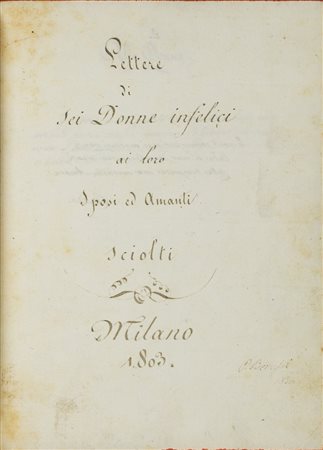 Lettere
di
Sei Donne infelici
ai loro
Sposi ed Amanti
Sciolti
Milano
1803.